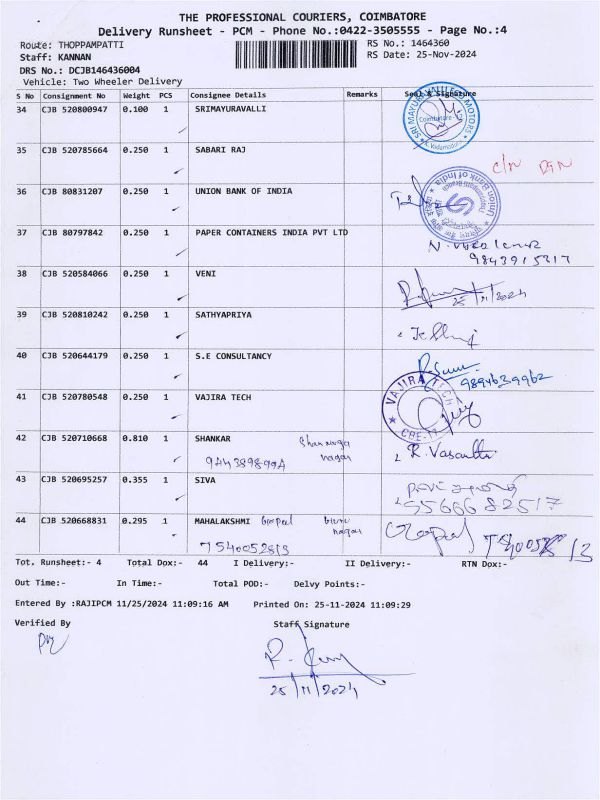 THE PROFESSIONAL COURIERS, COIMBATORE
Delivery Runsheet - PCM - Phone No.:0422-3505555 - Page No.:4
Route: THOPPAMPATTI
Staff: KANNAN
RS No.: 1464360
RS Date: 25-Nov-2024
DRS No.: DCJB146436004
Vehicle: Two Wheeler Delivery
S No Consignment No Weight PCS Consignee Details Remarks Seal & Signature
34 CJB 520800947 0.100 1 SRIMAYURAVALLI
35 CJB 520785664 0.250 1 SABARI RAJ
C/N
36 CJB 80831207 0.250 1 UNION BANK OF INDIA
Union Bank of India
37 CJB 80797842 0.250 1 PAPER CONTAINERS INDIA PVT LTD
38 CJB 520584066 0.250 1 VENI
25/11/2024
39 CJB 520810242 0.250 1 SATHYAPRIYA
40 CJB 520644179 0.250 1 S.E CONSULTANCY
9894639962
41 CJB 520780548 0.250 1 VAJIRA TECH
VAJIRA TECH
42 CJB 520710668 0.810 1 SHANKAR
nagar
R. Vasanthi
43 CJB 520695257 0.355 1 SIVA
44 CJB 520668831 0.295 1 MAHALAKSHMI Gopal
nagar
Gopal
Tot. Runsheet:- 4 Total Dox:- 44 I Delivery:- II Delivery:- RTN Dox:-
Out Time:- In Time:- Total POD:- Delvy Points:-
Entered By :RAJIPCM 11/25/2024 11:09:16 AM Printed On: 25-11-2024 11:09:29
Verified By Staff Signature
25/11/2024